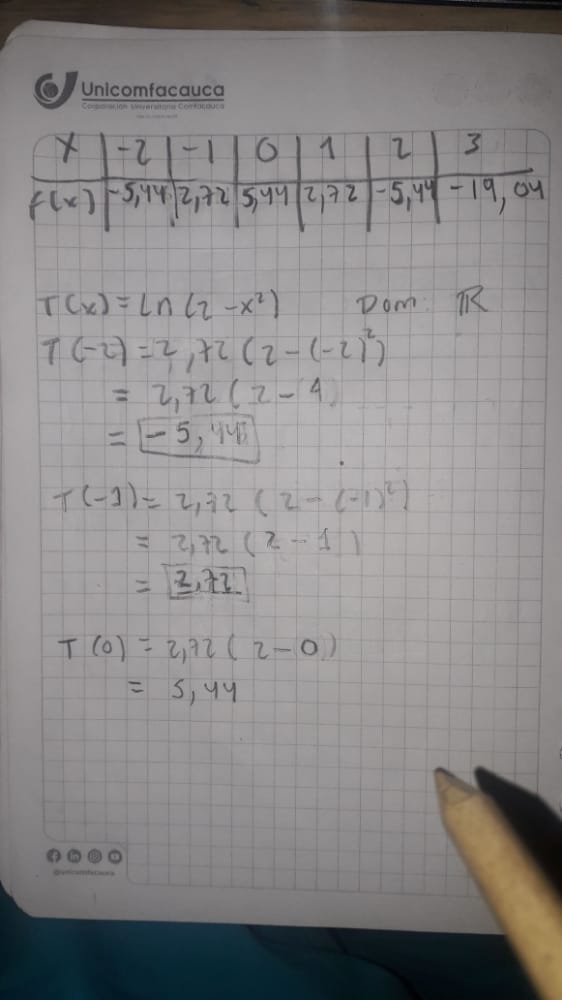 Unicomfacauca
Corporación Universitaria Comfacauca
x | -2 | -1 | 0 | 1 | 2 | 3
f(x) | -5,44 | 2,72 | 5,44 | 2,72 | -5,44 | -19,04
T(x) = Ln (2 - x²) Dom: ℝ
T(-2) = 2,72 (2 - (-2)²)
= 2,72 (2 - 4
= -5,44
T(-1) = 2,72 (2 - (-1)²)
= 2,72 (2 - 1)
= 2,72
T(0) = 2,72 (2 - 0)
= 5,44
@unicomfacauca